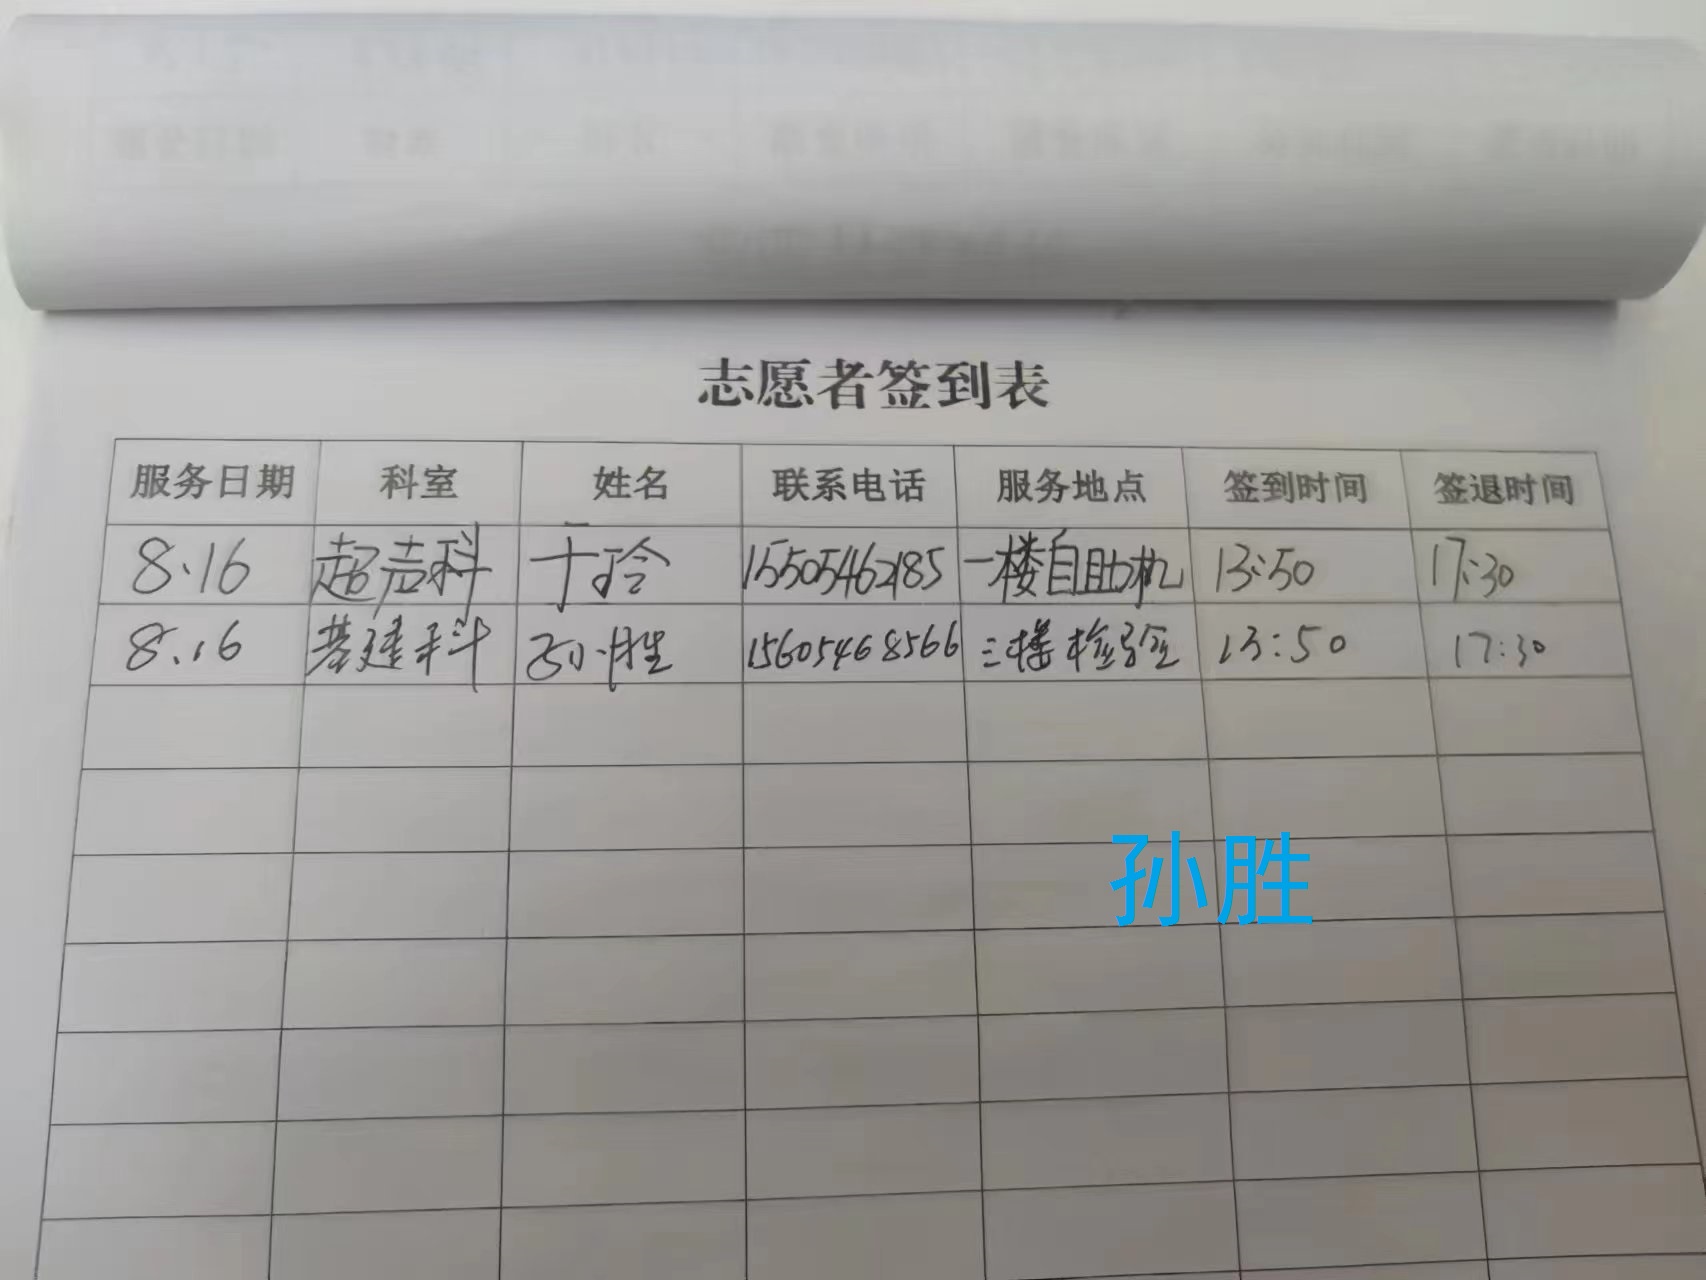 志愿者签到表
服务日期 科室 姓名 联系电话 服务地点 签到时间 签退时间
8.16 超声科 于玲 15505462185 一楼自助机 13:50 17:30
8.16 基建科 孙胜 15605468566 三楼检验室 13:50 17:30
孙胜